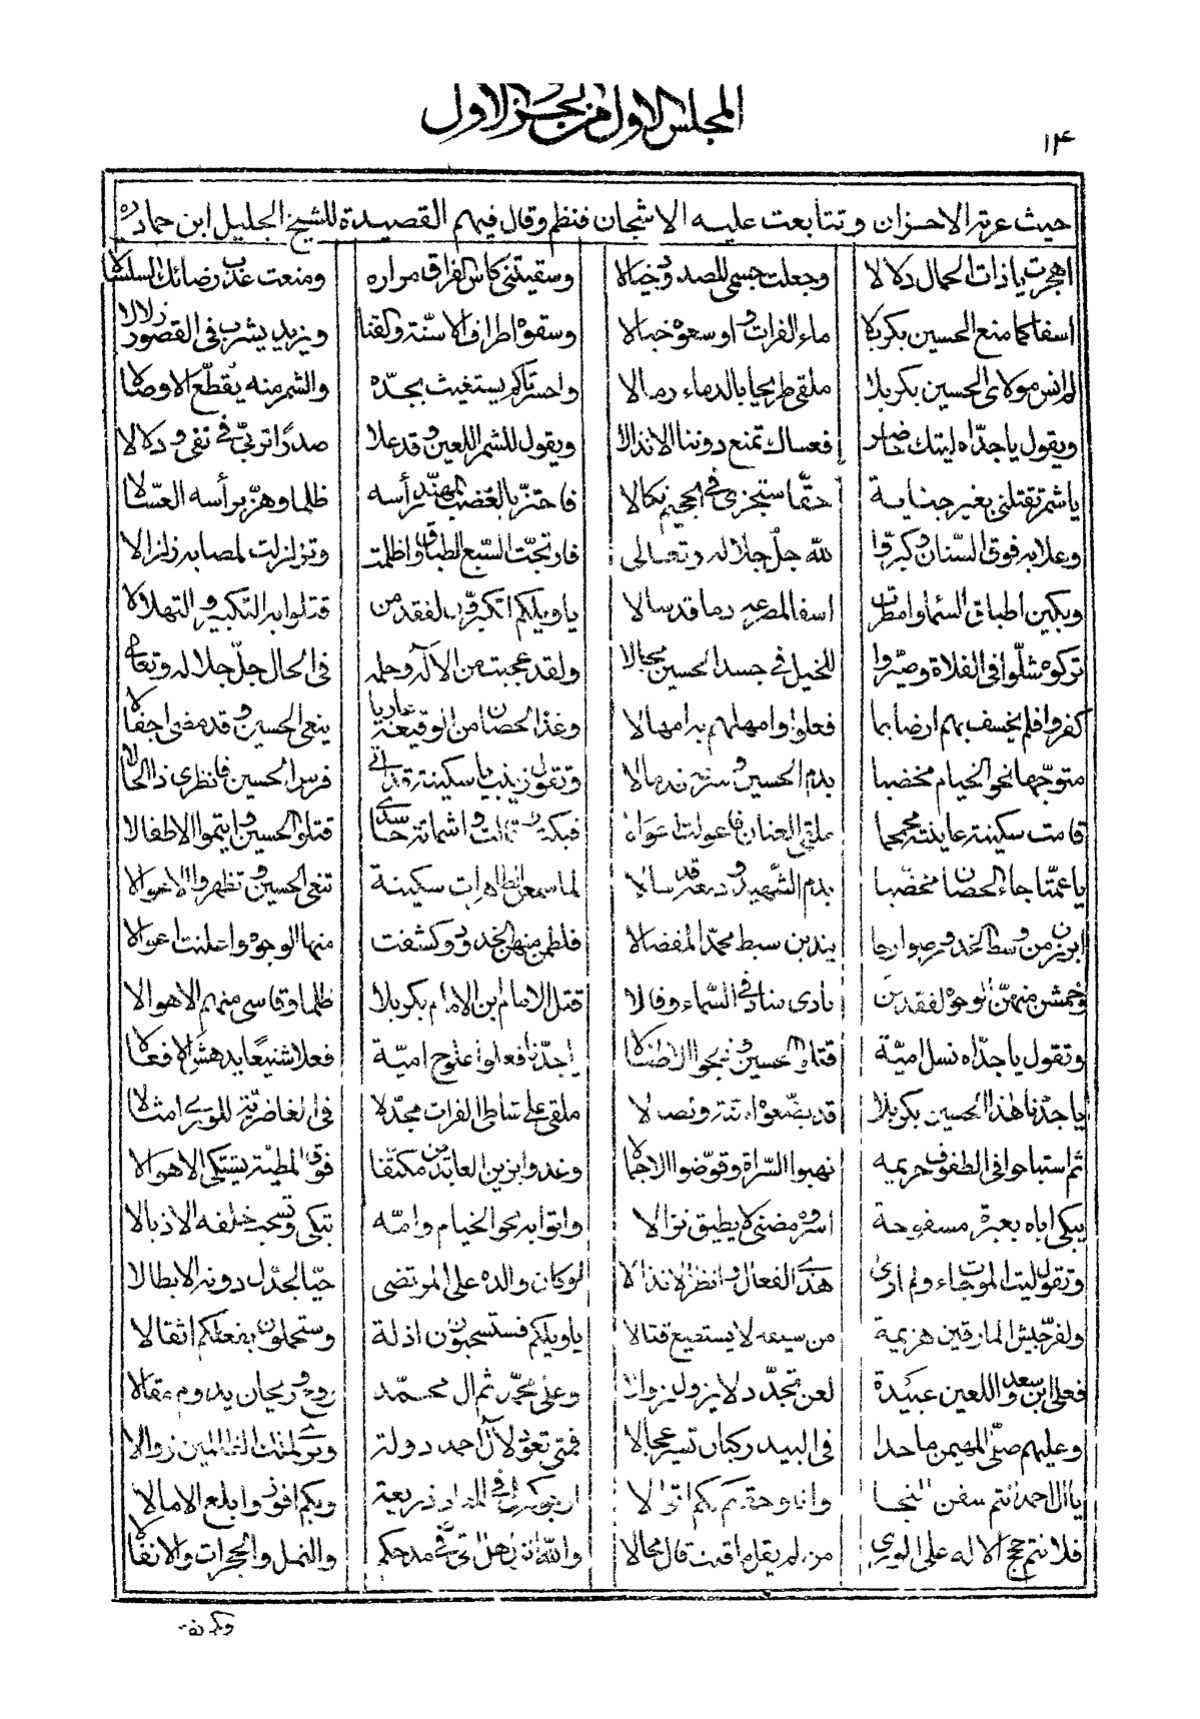 المجلس الاول من الجزء الاول
١٤
حيث عرته الاحزان وتتابعت عليه الاشجان فنظم وقال فيهم القصيدة للشيخ الجليل ابن حماد ره
اهجرت يا ذات الجمال دلالا وجعلت جسمي للصدود خيالا وسقيتني كاس الفراق مراره ومنعت عذب رضائك السلسالا
اسفا كما منع الحسين بكربلا ماء الفرات واوسعوه خبالا وسقوه اطراف الاسنّة والقنا ويزيد يشرب في القصور زلالا
لم انس مولاي الحسين بكربلا ملقى طريحا بالدماء رمالا واحسرتا كم يستغيث بجدّه والشمر منه يُقطّع الاوصالا
ويقول يا جدّاه ليتك حاضر فعساك تمنع دوننا الانذالا ويقول للشمر اللعين وقد علا صدرًا تربّى في تقى ودلالا
يا شمر تقتلني بغير جناية حقّا ستجزى في الجحيم نكالا فاحتزّ بالعضب المهنّد رأسه ظلما وهزّ برأسه العسّالا
وعلا به فوق السّنان وكبّروا للّه جل جلاله وتعالى فارتجّت السّبع الطباق واظلمت وتزلزلت لمصابه زلزالا
وبكين اطباق السّما وامطرت اسفا لمصرعه دما قد سالا يا ويلكم اتكبّرون لفقد من قتلوا به التكبير والتهلالا
تركوه شلّوا في الفلاة وصيّروا للخيل في جسد الحسين مجالا ولقد عجبت من الاله وحلمه في الحال جلّ جلاله وتعالى
كفروا فلم يخسف بهم ارضا بما فعلوا وامهلهم به امهالا وغدا الحصان من الوقيعة عاريا ينعى الحسين وقد مضى اجفالا
متوجّها نحو الخيام مخضبا بدم الحسين وسرجه قد مالا وتقول زينب يا سكينة قد اتى فرس الحسين فانظري ذا الحالا
قامت سكينة عاينته محمحما ملقى العنان فاعولت اعوالا فبكت وقالت واشماتة حاسدي قتلوا الحسين وايتموا الاطفالا
يا عمّتا جاء الحصان مخضّبا بدم الشّهيد ودمعه قد سالا لما سمعن الطاهرات سكينة تنعى الحسين وتظهر الاعوالا
ابرزن من وسط الخدور صوارخا يندبن سبط محمّد المفضالا فلطمن منهنّ الخدود وكشفت منها الوجوه واعلنت اعوالا
وخمشن منهنّ الوجوه لفقد من نادى مناد في السّماء وقالا قتل الامام ابن الامام بكربلا ظلما وقاسى منهم الاهوالا
وتقول يا جدّاه نسل اميّة قتلوا الحسين وذبحوا الاطفالا يا جدّنا فعلوا علوج اميّة فعلا شنيعًا يدهش الافعالا
يا جدّنا هذا الحسين بكربلا قد بضّعوه اسنّة ونصالا ملقى على شاطئ الفرات مجدّلا في الغاضريّة للورى امثالا
ثم استباحوا في الطفوف حريمه نهبوا السّراة وقوّضوا الاحمالا وغدوا بزين العابدين مكتفا فوق المطيّة يشتكي الاهوالا
يبكي اباه بعبرة مسفوحة اسروه مضنى لا يطيق نزالا واتوا به نحو الخيام وامّه تبكي وتسحب خلفه الاذيالا
وتقول ليت الموت جاء ولم ارى هذي الفعال وانظر الانذالا لو كان والده علي المرتضى حيّا لجدّل دونه الابطالا
ولفرّ جيش المارقين هزيمة من سيفه لا يستطيع قتالا يا ويلكم فستسحبون اذلة وستحملون بفعلكم اثقالا
فعلى ابن سعد واللعين عبيدة لعن تجدّد لا يزول زوالا وعلى محمّد ثم ال محمّد روح وريحان يدوم مقالا
وعليهم صلّى المهيمن ما حدا في البيد ركبان تسير عجالا فمتى تعود لآل احمد دولة ونرى لملك الظالمين زوالا
يا ال احمد انتم سفن النجا وانا وحقكم بكم اتوالا ارجوكم لي في المعاد ذريعة وبكم افوز وابلغ الامالا
فلانتم حجج الاله على الورى من لم يقل ما قلت قال محالا والله انزل هل اتى في مدحكم والنمل والحجرات والانفالا